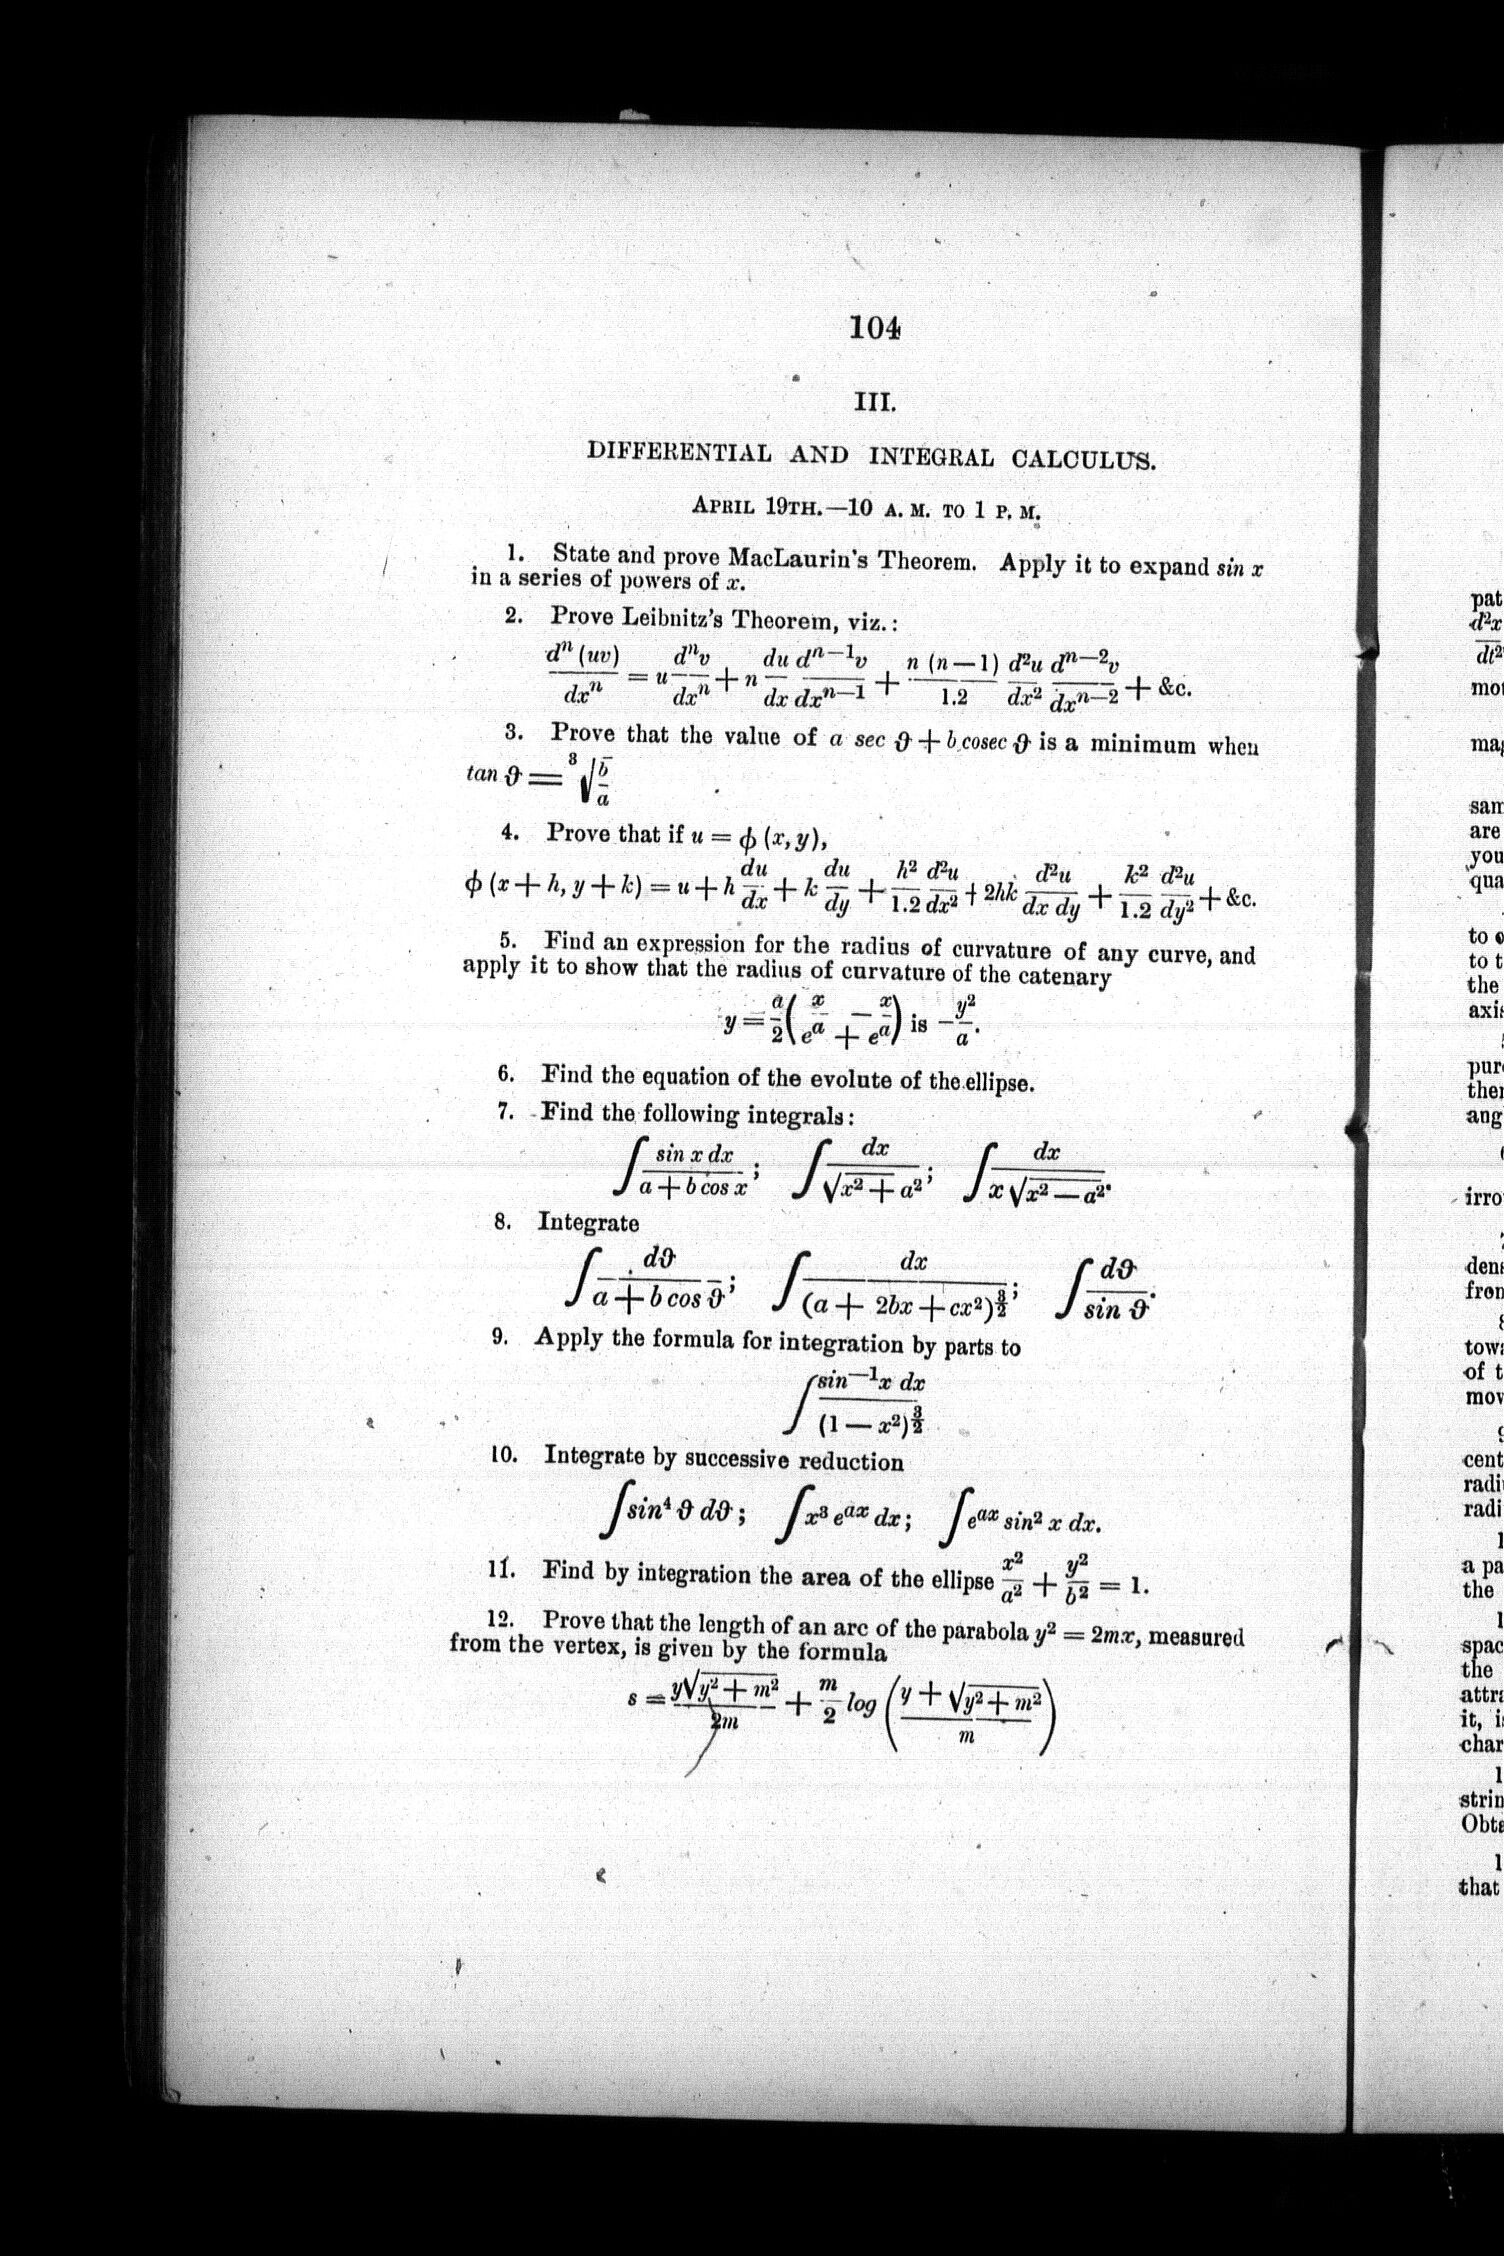 104
III.
DIFFERENTIAL AND INTEGRAL CALCULUS.
APRIL 19TH.—10 A. M. TO 1 P. M.
1. State and prove MacLaurin's Theorem. Apply it to expand sin x
in a series of powers of x.
2. Prove Leibnitz's Theorem, viz.:
\frac{d^n (uv)}{dx^n} = u \frac{d^n v}{dx^n} + n \frac{du}{dx} \frac{d^{n-1}v}{dx^{n-1}} + \frac{n (n-1)}{1.2} \frac{d^2u}{dx^2} \frac{d^{n-2}v}{dx^{n-2}} + &c.
3. Prove that the value of a sec ϑ + b cosec ϑ is a minimum when
tan ϑ = \sqrt[3]{\frac{b}{a}}
4. Prove that if u = ϕ (x, y),
ϕ (x + h, y + k) = u + h \frac{du}{dx} + k \frac{du}{dy} + \frac{h^2}{1.2} \frac{d^2u}{dx^2} + 2hk \frac{d^2u}{dx dy} + \frac{k^2}{1.2} \frac{d^2u}{dy^2} + &c.
5. Find an expression for the radius of curvature of any curve, and
apply it to show that the radius of curvature of the catenary
y = \frac{a}{2} ( e^{\frac{x}{a}} + e^{-\frac{x}{a}} ) is - \frac{y^2}{a}.
6. Find the equation of the evolute of the ellipse.
7. Find the following integrals:
∫ \frac{sin x dx}{a + b cos x}; ∫ \frac{dx}{\sqrt{x^2 + a^2}}; ∫ \frac{dx}{x \sqrt{x^2 — a^2}}.
8. Integrate
∫ \frac{dϑ}{a + b cos ϑ}; ∫ \frac{dx}{(a + 2bx + cx^2)^{\frac{3}{2}}}; ∫ \frac{dϑ}{sin ϑ}.
9. Apply the formula for integration by parts to
∫ \frac{sin^{-1}x dx}{(1 — x^2)^{\frac{3}{2}}}
10. Integrate by successive reduction
∫ sin^4 ϑ dϑ; ∫ x^3 e^{ax} dx; ∫ e^{ax} sin^2 x dx.
11. Find by integration the area of the ellipse \frac{x^2}{a^2} + \frac{y^2}{b^2} = 1.
12. Prove that the length of an arc of the parabola y^2 = 2mx, measured
from the vertex, is given by the formula
s = \frac{y\sqrt{y^2 + m^2}}{2m} + \frac{m}{2} log ( \frac{y + \sqrt{y^2 + m^2}}{m} )